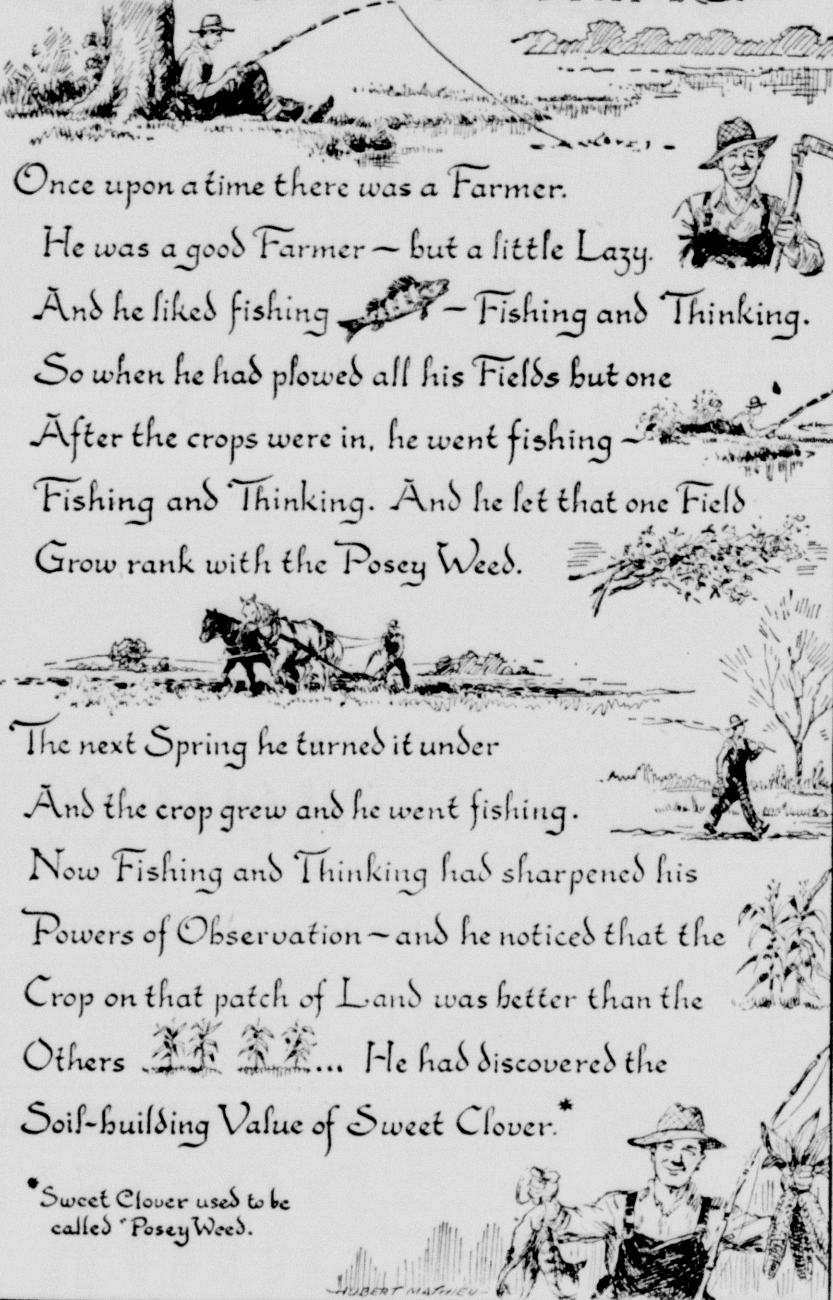 Once upon a time there was a Farmer.
He was a good Farmer — but a little Lazy.
And he liked fishing — Fishing and Thinking.
So when he had plowed all his Fields but one
After the crops were in, he went fishing —
Fishing and Thinking. And he let that one Field
Grow rank with the Posey Weed.
The next Spring he turned it under
And the crop grew and he went fishing.
Now Fishing and Thinking had sharpened his
Powers of Observation — and he noticed that the
Crop on that patch of Land was better than the
Others ... He had discovered the
Soil-building Value of Sweet Clover.*
*Sweet Clover used to be
called "Posey Weed.
HUBERT MATHIEU